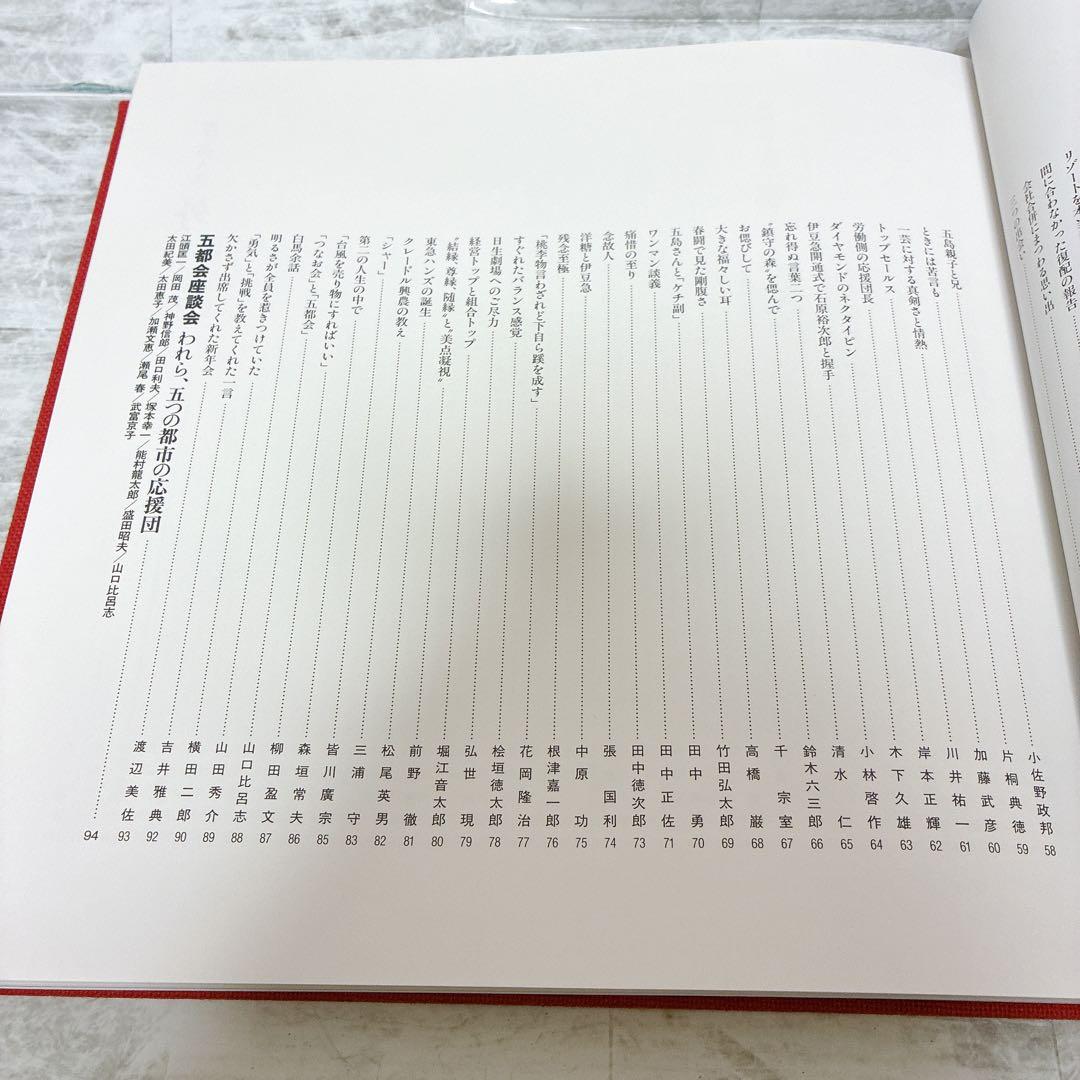 リゾートを本
間に合わなかった復配の報告
会社合併にまつわる思い出
五島親子と兄 小佐野政邦 58
ときには苦言も 片桐典徳 59
一芸に対する真剣さと情熱 加藤武彦 60
トップセールス 川井祐一 61
労働側の応援団長 岸本正輝 62
ダイヤモンドのネクタイピン 木下久雄 63
伊豆急開通式で石原裕次郎と握手 小林啓作 64
忘れ得ぬ言葉二つ 清水仁 65
〝鎮守の森〟を偲んで 鈴木六三郎 66
お偲びして 千宗室 67
大きな福々しい耳 高橋巌 68
春闘で見た剛腹さ 竹田弘太郎 69
五島さんと、「ケチ副」 田中勇 70
ワンマン談義 田中正佐 71
痛惜の至り 田中徳次郎 73
念故人 張国利 74
洋糖と伊豆急 中原功 75
残念至極 根津嘉一郎 76
「桃李物言わざれど下自ら蹊を成す」 花岡隆治 77
すぐれたバランス感覚 桧垣徳太郎 78
日生劇場へのご尽力 弘世現 79
経営トップと組合トップ 堀江音太郎 80
〝結縁、尊縁、随縁〟と〝美点凝視〟 前野徹 81
東急ハンズの誕生 松尾英男 82
クレードル興農の教え 三浦守 83
「ジャー」 皆川廣宗 85
第二の人生の中で 森垣常夫 86
「台風を売り物にすればいい」 柳田盈文 87
「つなお会」と「五都会」 山口比呂志 88
白馬余話 山田秀介 89
明るさが全員を惹きつけていた 横田二郎 90
「勇気」と「挑戦」を教えてくれた一言 吉井雅典 92
欠かさず出席してくれた新年会 渡辺美佐 93
五都会座談会 われら、五つの都市の応援団 94
江頭匡一/岡田茂/神野信郎/田口利夫/塚本幸一/能村龍太郎/盛田昭夫/山口比呂志
太田紀美/太田恵子/加瀬文恵/瀬尾春/武富京子